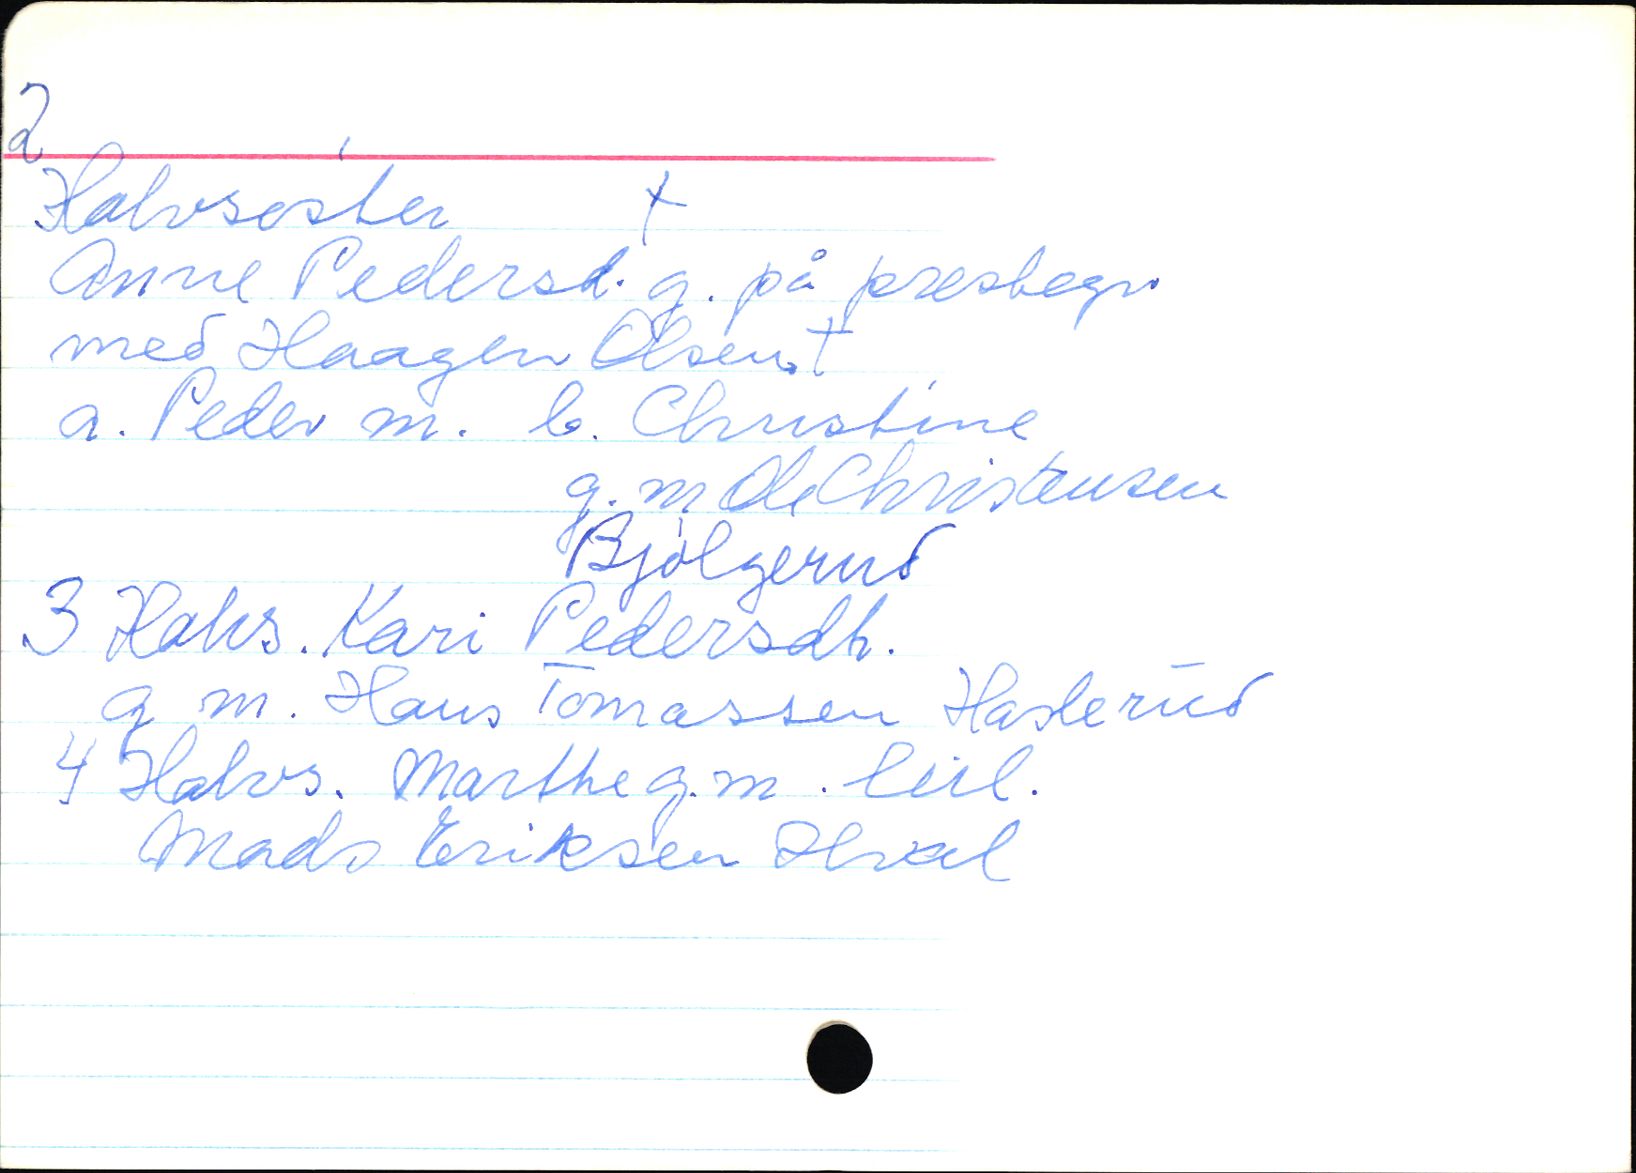 2
Halvsøster +
Anne Pedersd. g. på prestegr.
med Haagen Olsen. †
a. Peder m. b. Christine
g. m Ole Christensen
Bjølgerud
3 Halvs. Kari Pedersdt.
g m. Hans Tomassen Haslerud
4 Halvs. Marthe g. m. leil.
Mads Eriksen Hval